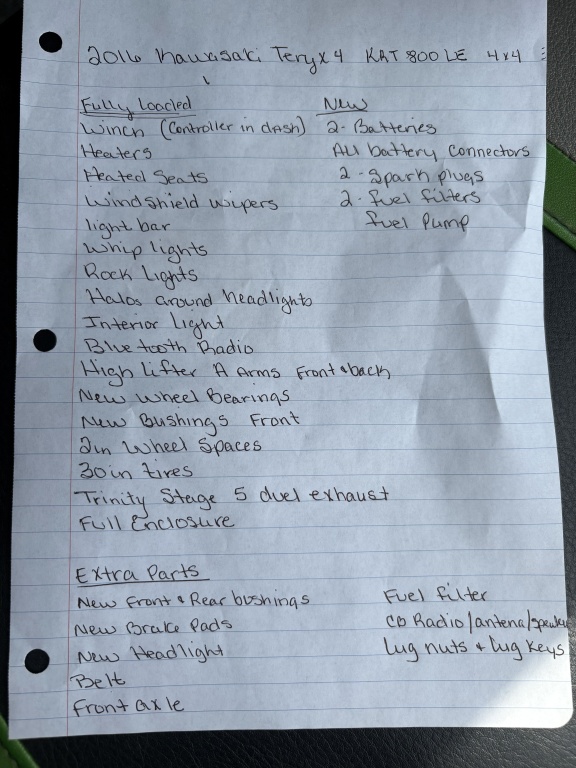 2016 Kawasaki Teryx4 KAT 800 LE 4x4
Fully Loaded
Winch (Controller in dash)
Heaters
Heated Seats
Windshield Wipers
light bar
Whip lights
Rock Lights
Halos around headlights
Interior light
Bluetooth Radio
High Lifter A Arms Front & back
New Wheel Bearings
New Bushings Front
2in Wheel Spaces
30in tires
Trinity Stage 5 duel exhaust
Full Enclosure
New
2- Batteries
All battery connectors
2- Spark plugs
2- fuel filters
fuel Pump
Extra Parts
New Front & Rear bushings
New Brake Pads
New Headlight
Belt
Front axle
Fuel filter
CB Radio/antena/
Lug nuts & Lug Keys